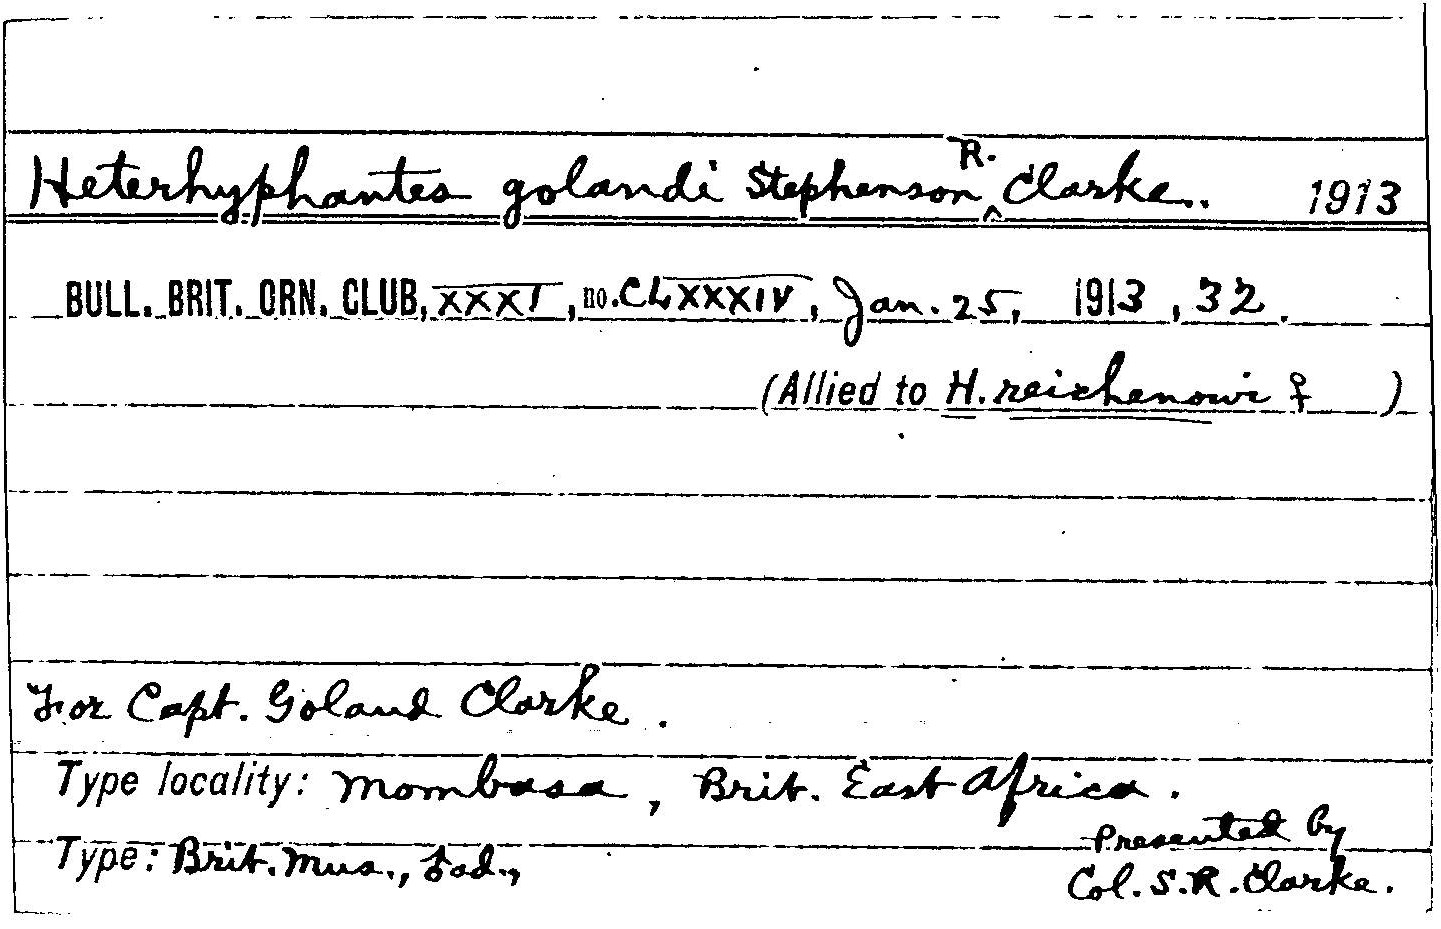 Heterhyphantes golandi Stephenson R. Clarke.. 1913
BULL. BRIT. ORN. CLUB, XXXI, no. CLXXXIV, Jan. 25, 1913, 32.
(Allied to H. reichenowi ♀ )
For Capt. Goland Clarke.
Type locality: Mombasa, Brit. East Africa.
Type: Brit. Mus.,
Presented by
Col. S. R. Clarke.